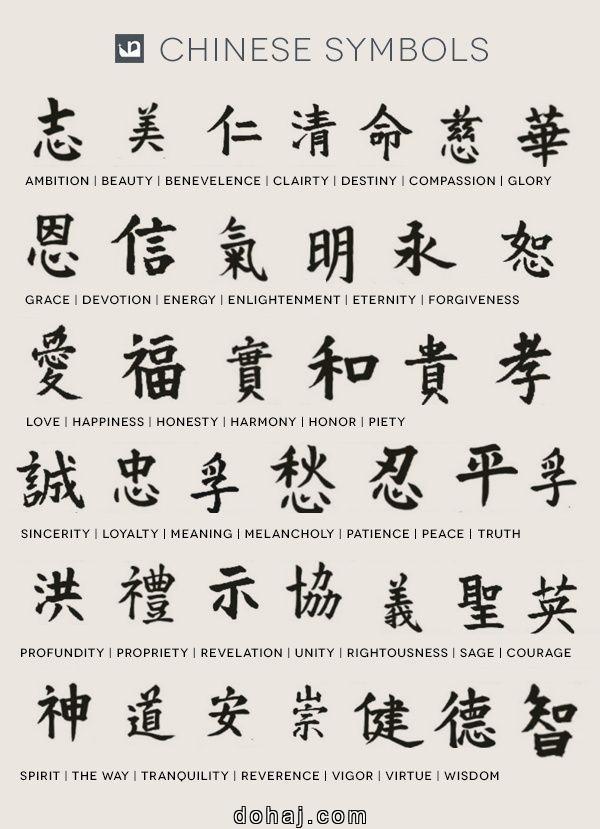 CHINESE SYMBOLS
志 美 仁 清 命 慈 華
AMBITION | BEAUTY | BENEVELENCE | CLAIRTY | DESTINY | COMPASSION | GLORY
恩 信 氣 明 永 恕
GRACE | DEVOTION | ENERGY | ENLIGHTENMENT | ETERNITY | FORGIVENESS
愛 福 實 和 貴 孝
LOVE | HAPPINESS | HONESTY | HARMONY | HONOR | PIETY
誠 忠 孚 愁 忍 平 孚
SINCERITY | LOYALTY | MEANING | MELANCHOLY | PATIENCE | PEACE | TRUTH
洪 禮 示 協 義 聖 英
PROFUNDITY | PROPRIETY | REVELATION | UNITY | RIGHTOUSNESS | SAGE | COURAGE
神 道 安 崇 健 德 智
SPIRIT | THE WAY | TRANQUILITY | REVERENCE | VIGOR | VIRTUE | WISDOM
dohaj.com